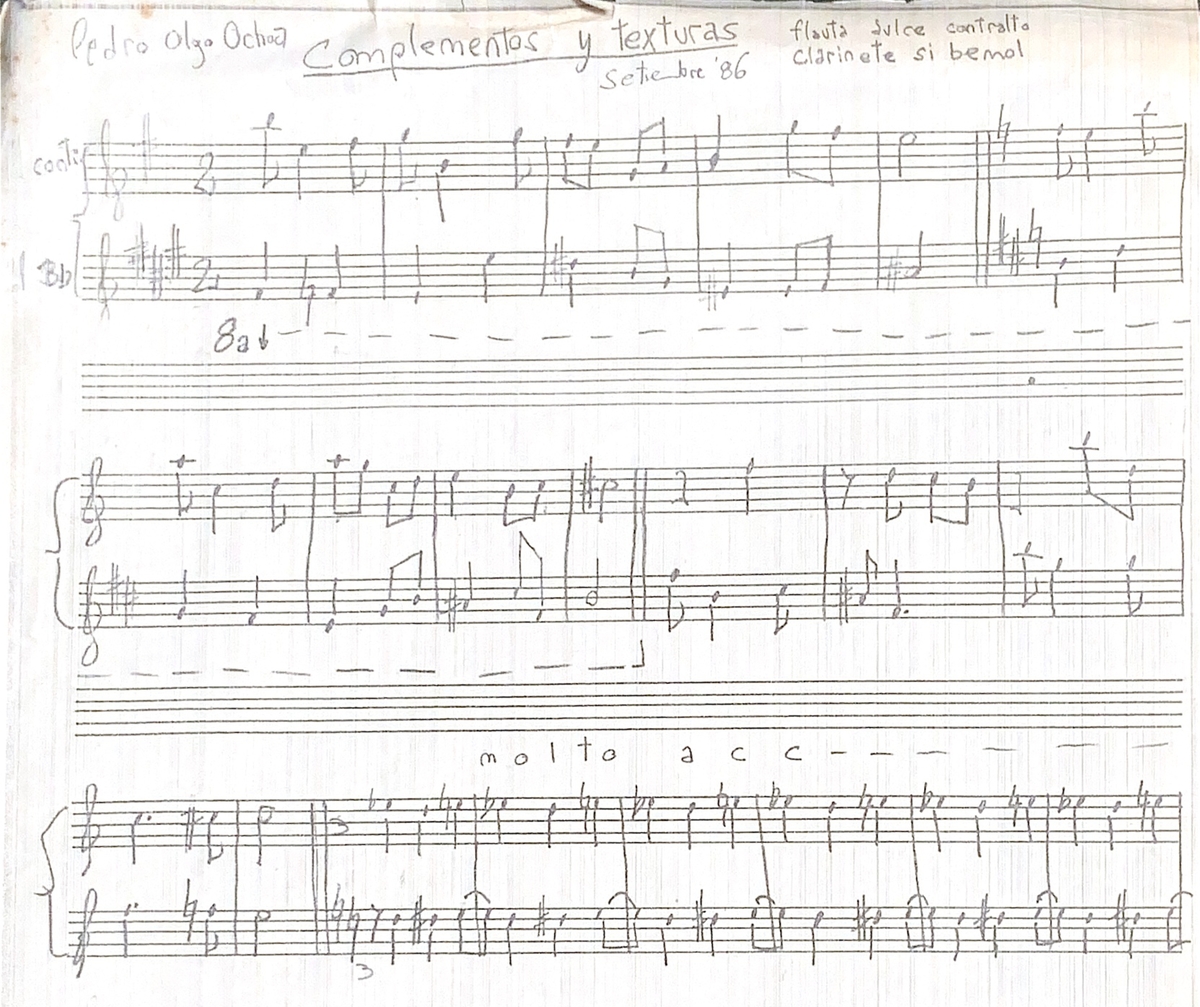 Pedro Olgo Ochoa
Complementos y texturas
setiembre '86
flauta dulce contralto
clarinete si bemol
2
Bb
2
8a
molto acc
3
3